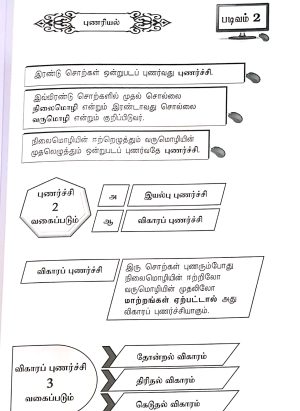 புணரியல்
படிவம் 2
இரண்டு சொற்கள் ஒன்றுபடப் புணர்வது புணர்ச்சி.
இவ்விரண்டு சொற்களில் முதல் சொல்லை
நிலைமொழி என்றும் இரண்டாவது சொல்லை
வருமொழி என்றும் குறிப்பிடுவர்.
நிலைமொழியின் ஈற்றெழுத்தும் வருமொழியின்
முதலெழுத்தும் ஒன்றுபடப் புணர்வதே புணர்ச்சி.
புணர்ச்சி
2
வகைப்படும்
அ
இயல்பு புணர்ச்சி
ஆ
விகாரப் புணர்ச்சி
விகாரப் புணர்ச்சி
இரு சொற்கள் புணரும்போது
நிலைமொழியின் ஈற்றிலோ
வருமொழியின் முதலிலோ
மாற்றங்கள் ஏற்பட்டால் அது
விகாரப் புணர்ச்சியாகும்.
விகாரப் புணர்ச்சி
3
வகைப்படும்
தோன்றல் விகாரம்
திரிதல் விகாரம்
கெடுதல் விகாரம்